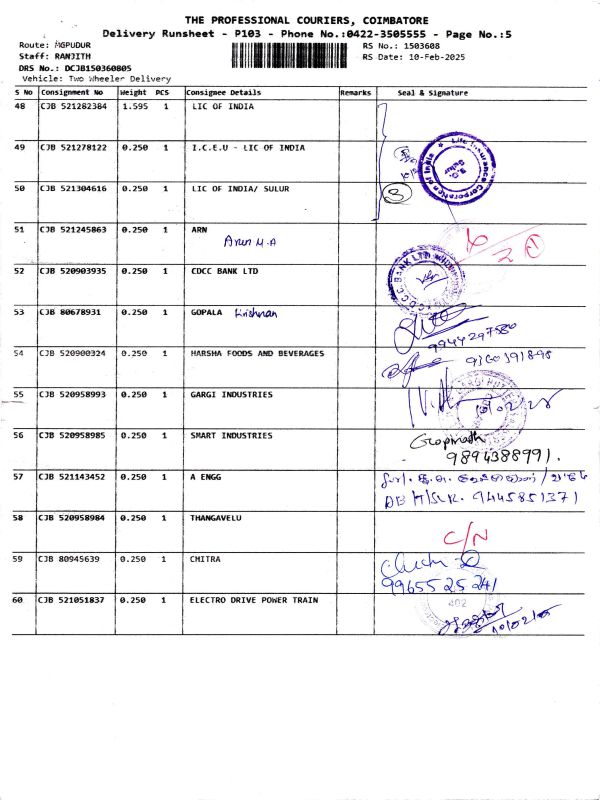 THE PROFESSIONAL COURIERS, COIMBATORE
Delivery Runsheet - P103 - Phone No.:0422-3505555 - Page No.:5
Route: MGPUDUR RS No.: 1503608
Staff: RANJITH RS Date: 10-Feb-2025
DRS No.: DCJB150360805
Vehicle: Two Wheeler Delivery
S No Consignment No Weight PCS Consignee Details Remarks Seal & Signature
48 CJB 521282384 1.595 1 LIC OF INDIA
49 CJB 521278122 0.250 1 I.C.E.U - LIC OF INDIA
Life Insurance Corporation of India
Sulur
50 CJB 521304616 0.250 1 LIC OF INDIA/ SULUR
3
51 CJB 521245863 0.250 1 ARN
Arun M.A
52 CJB 520903935 0.250 1 CDCC BANK LTD
53 CJB 80678931 0.250 1 GOPALA Krishnan
9944297580
54 CJB 520900324 0.250 1 HARSHA FOODS AND BEVERAGES
55 CJB 520958993 0.250 1 GARGI INDUSTRIES
56 CJB 520958985 0.250 1 SMART INDUSTRIES Gopinath
9894388991.
57 CJB 521143452 0.250 1 A ENGG
9445851371
58 CJB 520958984 0.250 1 THANGAVELU
C/N
59 CJB 80945639 0.250 1 CHITRA
9965525241
60 CJB 521051837 0.250 1 ELECTRO DRIVE POWER TRAIN
402
10/02/25